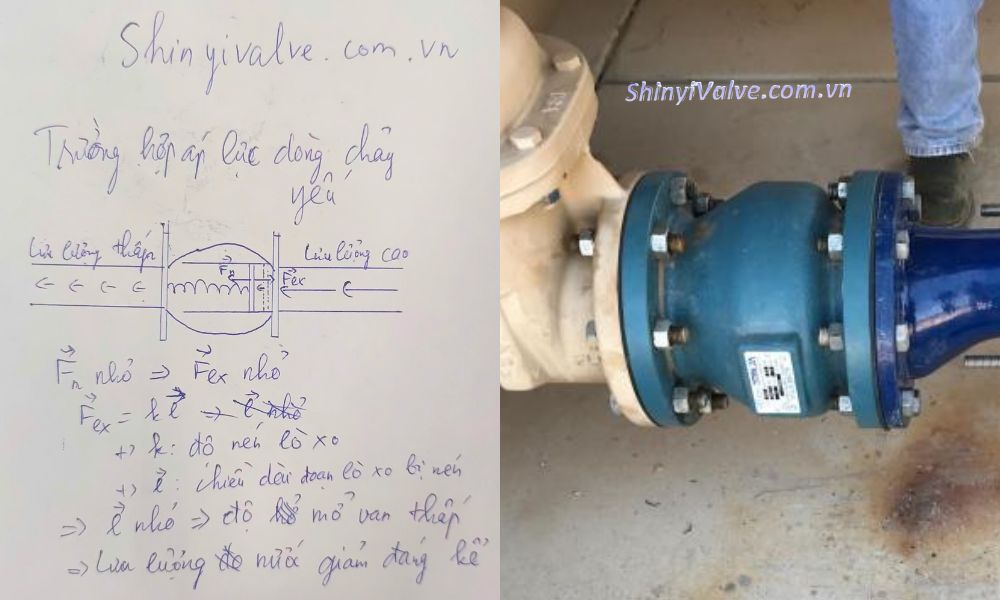 Shinyivalve.com.vn
Trường hợp áp lực dòng chảy
yếu
Lưu lượng thấp
Lưu lượng cao
F→n
F→ex
F→n nhỏ ⇒ F→ex nhỏ
F→ex = k l→
+> k: độ nén lò xo
+> l→: chiều dài đoạn lò xo bị nén
⇒ l→ nhỏ ⇒ độ mở van thấp
⇒ Lưu lượng nước giảm đáng kể
ShinyiValve.com.vn